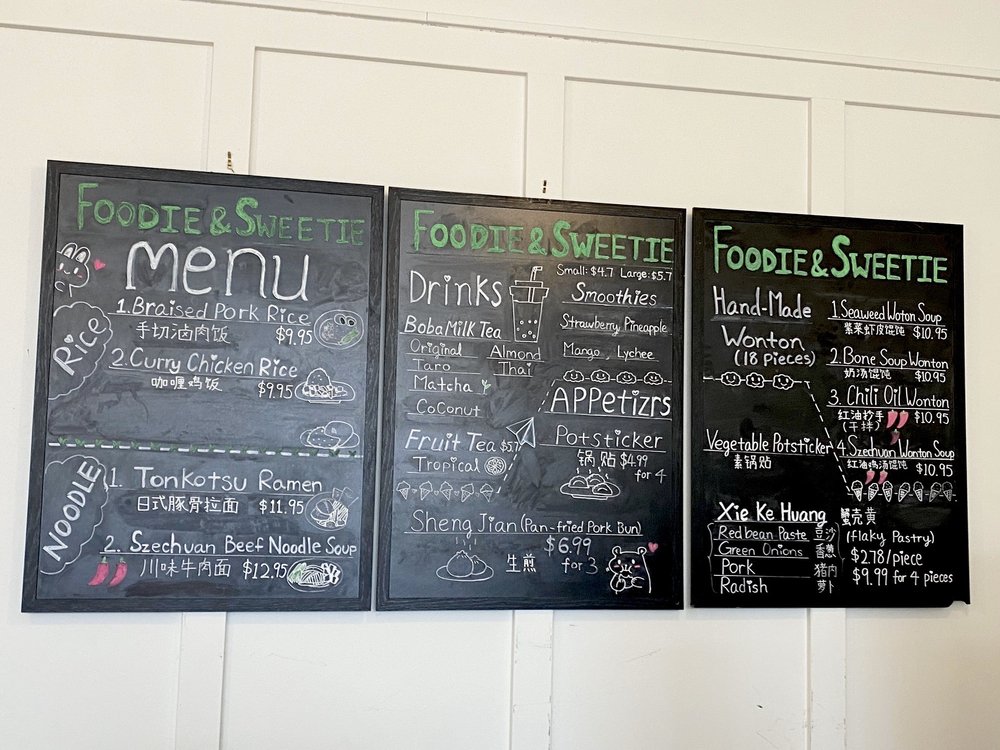 FOODIE & SWEETIE
menu
Rice
1. Braised Pork Rice
手切滷肉饭 $9.95
2. Curry Chicken Rice
咖喱鸡饭 $9.95
NOODLE
1. Tonkotsu Ramen
日式豚骨拉面 $11.95
2. Szechuan Beef Noodle Soup
川味牛肉面 $12.95
FOODIE & SWEETIE
Small: $4.7 Large: $5.7
Drinks
Smoothies
Strawberry, Pineapple
Mango, Lychee
Boba Milk Tea
Original Almond
Taro Thai
Matcha
Coconut
Fruit Tea $5.7
Tropical
APPetizrs
Potsticker
锅贴 $4.99
for 4
Sheng Jian (Pan-fried Pork Bun)
生煎 $6.99
for 3
FOODIE & SWEETIE
Hand-Made
Wonton
(18 Pieces)
1. Seaweed Woton Soup
紫菜虾皮馄饨 $10.95
2. Bone Soup Wonton
奶汤馄饨 $10.95
3. Chili Oil Wonton
红油抄手 $10.95
(干拌)
4. Szechuan Wonton Soup
红油鸡汤馄饨 $10.95
Vegetable Potsticker
素锅贴
Xie Ke Huang 蟹壳黄
(flaky Pastry)
Redbean Paste 豆沙
Green Onions 香葱
Pork 猪肉
Radish 萝卜
$2.78/piece
$9.99 for 4 pieces